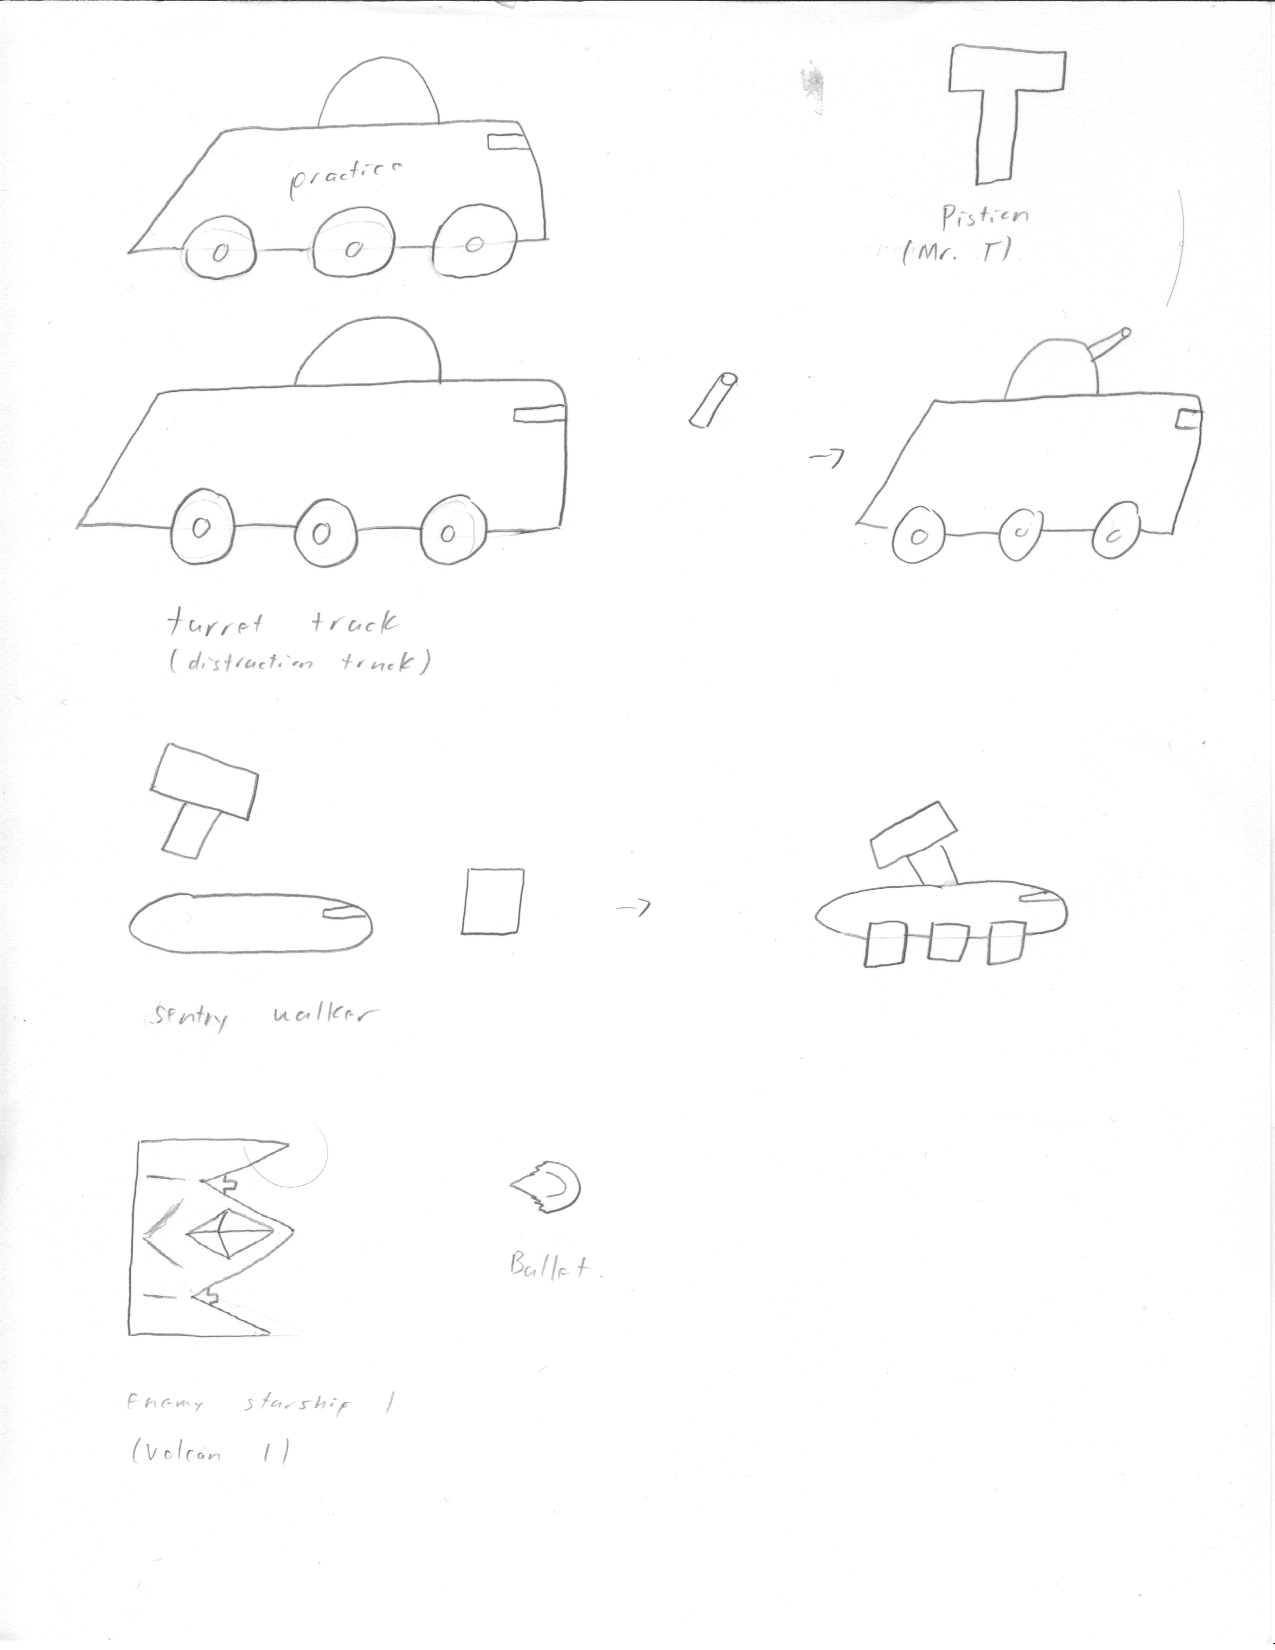 practice
Pistien
(Mr. T)
turret truck
(distraction truck)
sentry walker
Bullet.
Enemy starship 1
(Volcan 1)